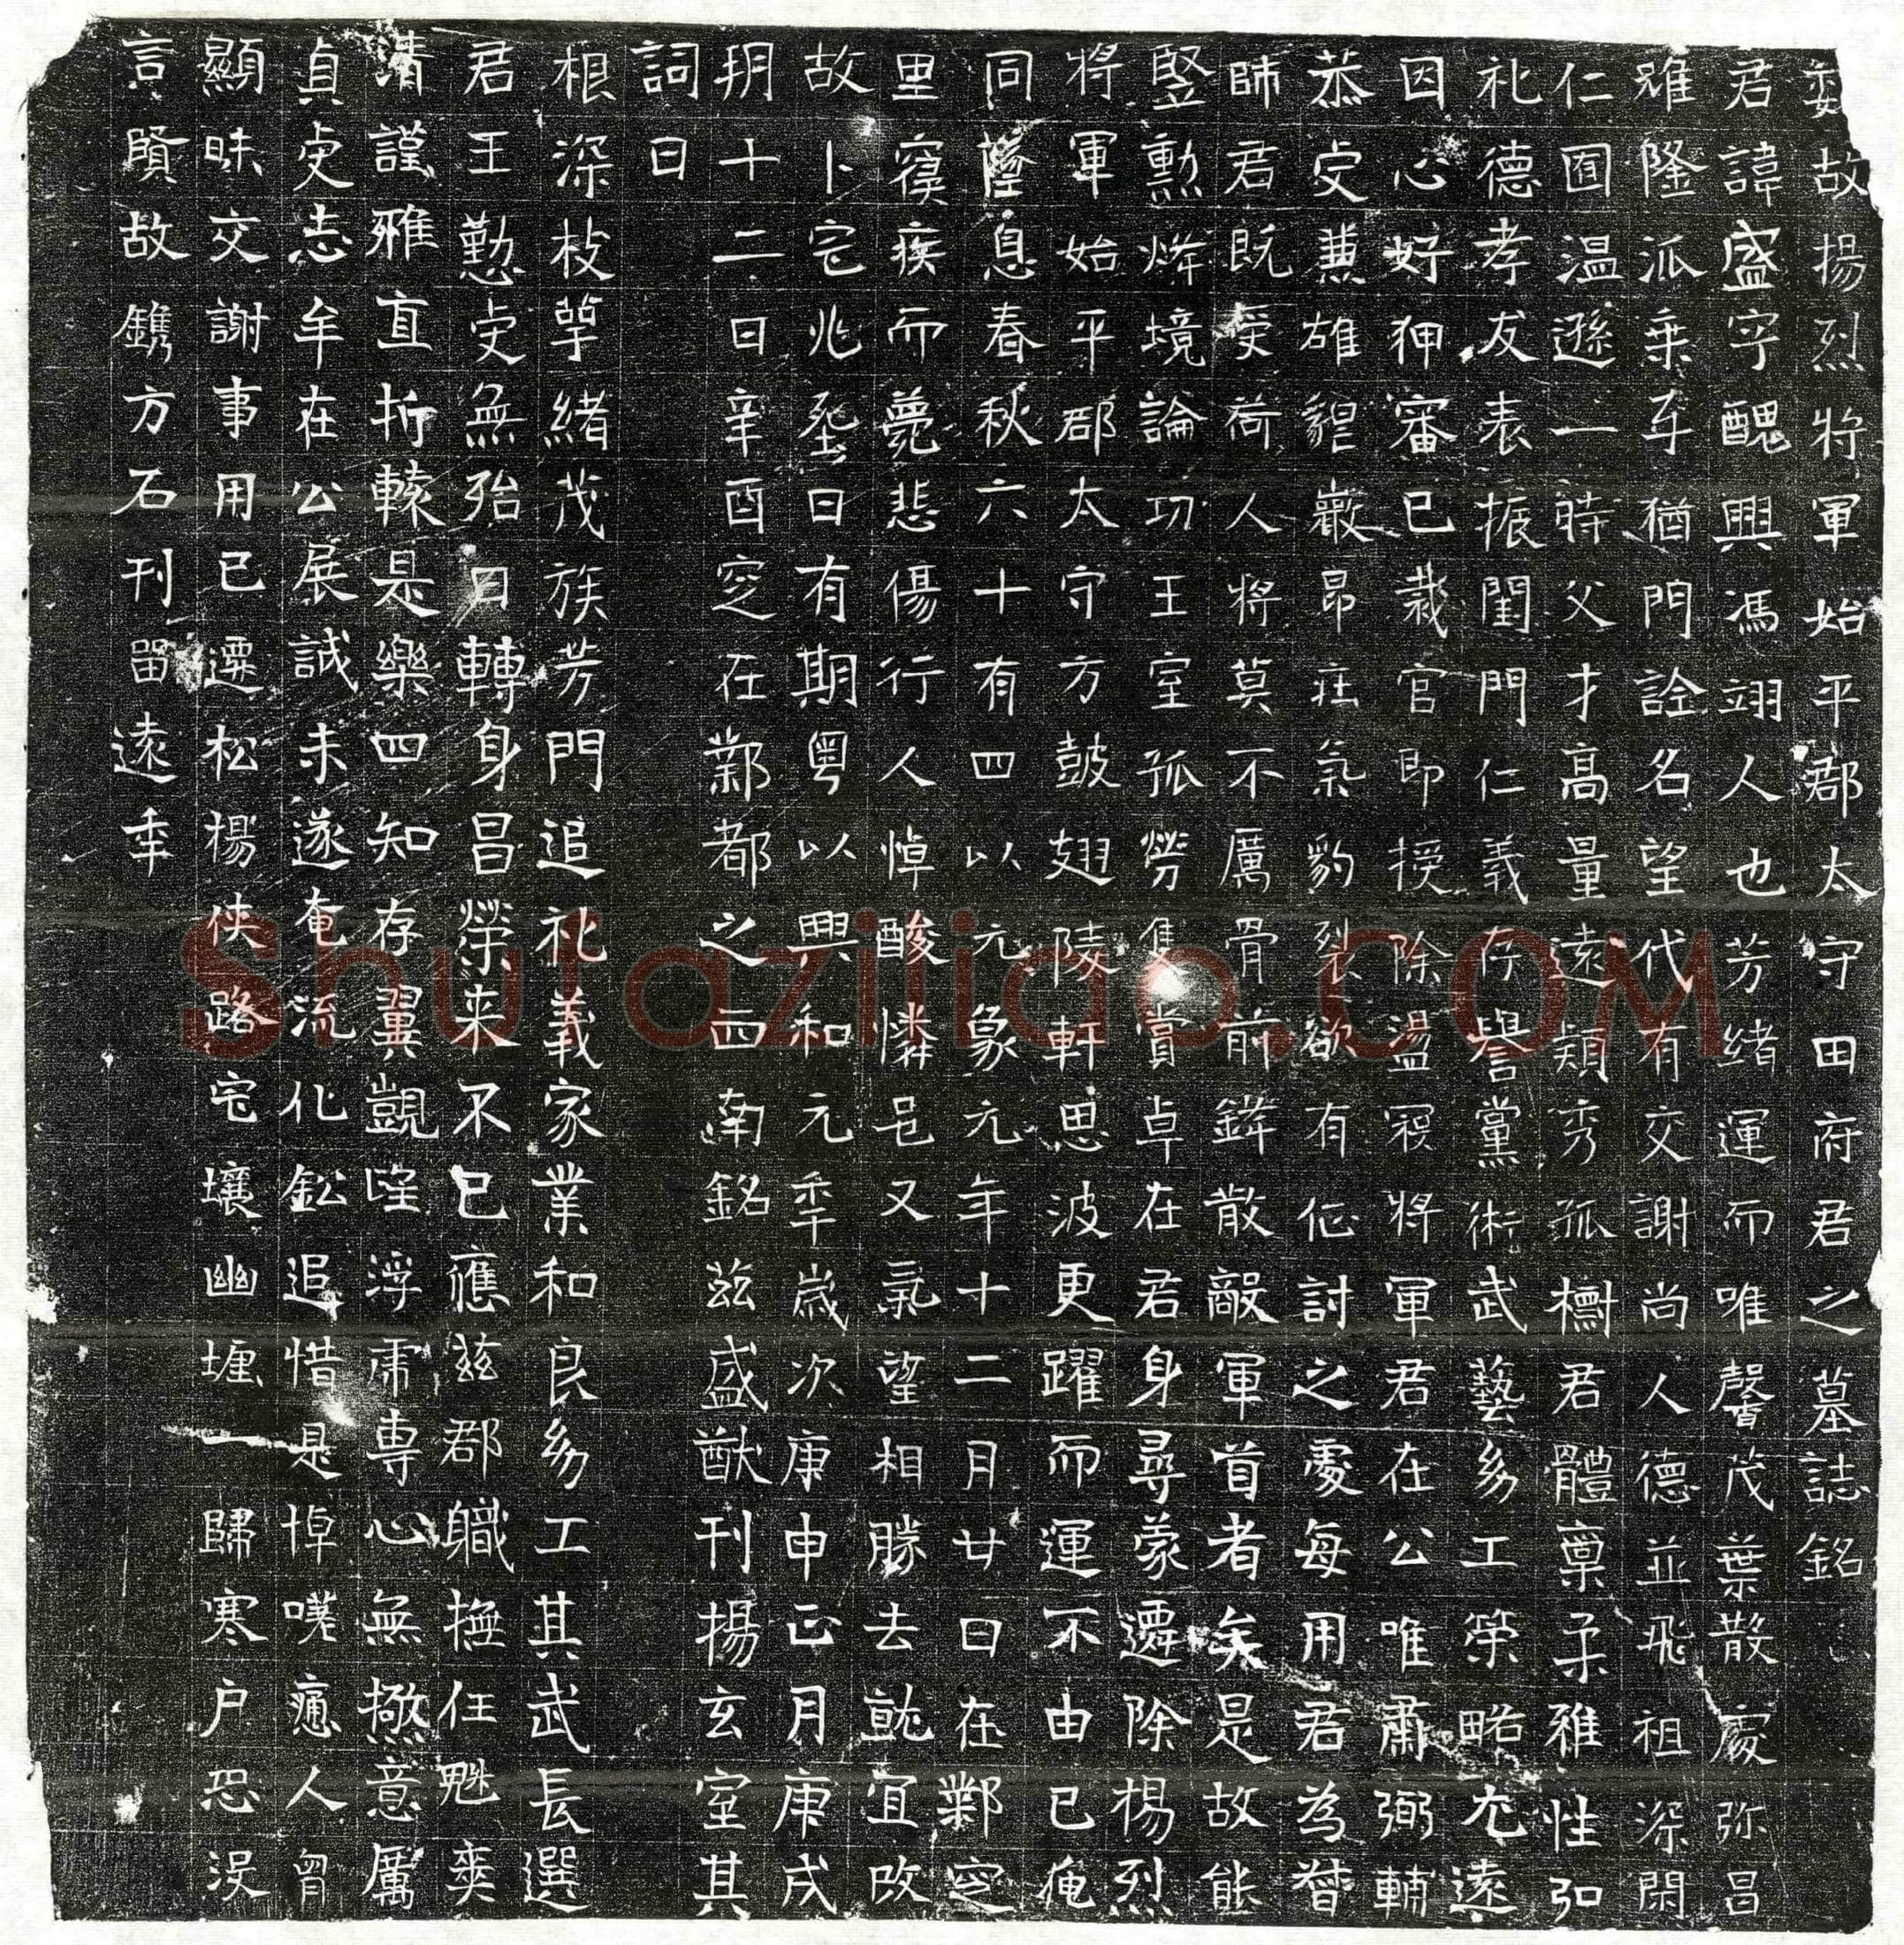 魏故揚烈將軍始平郡太守田府君之墓誌銘
君諱盛字醜興馮翊人也芳緒運而唯馨茂葉散處弥昌
雖隆派乘车猶門詮名望代有交謝尚人德並飛祖深閑
仁囿温遜一時父才高量遠穎秀孤樹君體稟柔雅性弘
礼德孝友表振閨門仁義存譽黨術武藝多工策略尤遠
因心好狎審已裁官即授除盪寇將軍君在公唯肅弼輔
恭史兼雄貇嚴昂庄氣豹裂欲有征討之處每用君為督
師君既受荷人將莫不厲骨前鋒散敵軍首者矣是故能
竪勳烽境論功王室孤勞隻賞卓在君身尋蒙遷除楊烈
將軍始平郡太守方鼓翅陵軒思波更躍而運不由已俺
同墜息春秋六十有四以元象元年十二月廿日在鄴空
里寢疾而薨悲傷行人悼酸憐邑又氣望相勝去就宜改
故卜宅兆塋曰有期粤以興和元年歲次庚申正月庚戌
朔十二日辛酉窆在鄴都之西南銘茲盛猷刊揚玄室其
詞曰
根深枝擧緒茂族芳門追礼義家業和良多工其武長選
君王懃史無殆日轉身昌榮来不已應兹郡職撫任魁奭
清謹雅直折轅是樂四知存翼覬隆浮虜專心無撽意厲
貞史志牟在公展誠未遂奄流化鈆追惜是悼嘆慟人胷
顯昧交謝事用已遷松楊俠路宅壤幽壥一歸寒户恐没
言賢故鐫方石刊留遠年